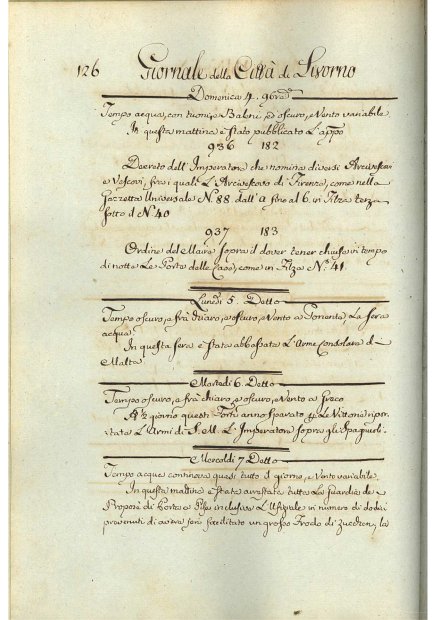 126 Giornale della Città di Livorno
Domenica 4. 9bre
Tempo acqua, con tuoni, e Baleni, ed oscuro, e Vento variabile
In questa mattina è stato pubblicato L'appo
936 182
Decreto dell'Imperatore che nomina diversi Arcivescovi
e Vescovi, frà i quali L'Arcivescovo di Firenze, come nella
Gazzetta Universale N. 88. dall' a fino al 6. in Filza terza
sotto d N. 40
937 183
Ordine del Maire sopra il dover tener chiuse in tempo
di notte Le Porte delle Case, come in Filza N. 41.
Lunedì 5. Detto
Tempo oscuro, e frà chiaro, e oscuro, e Vento a Ponente, La sera
acqua.
In questa sera è stata abbassata L'Arme Consolare di
Malta.
Martedì 6. Detto
Tempo oscuro, e frà chiaro, e oscuro, e Vento a Greco
A ½ giorno questi Forti anno sparato p Le Vittorie ripor-
tate L'Armi di S. M. L'Imperatore sopra gli Spagnuoli.
Mercoldì 7. Detto
Tempo acqua continova quasi tutto il giorno, e Vento variabile.
In questa mattina è state arrestate tutte Le Guardie de
Proposti di Porta a Pisa inclusive L'Uffiziale in numero di dodici
prevenuti di avere fatto un grosso Frodo di la